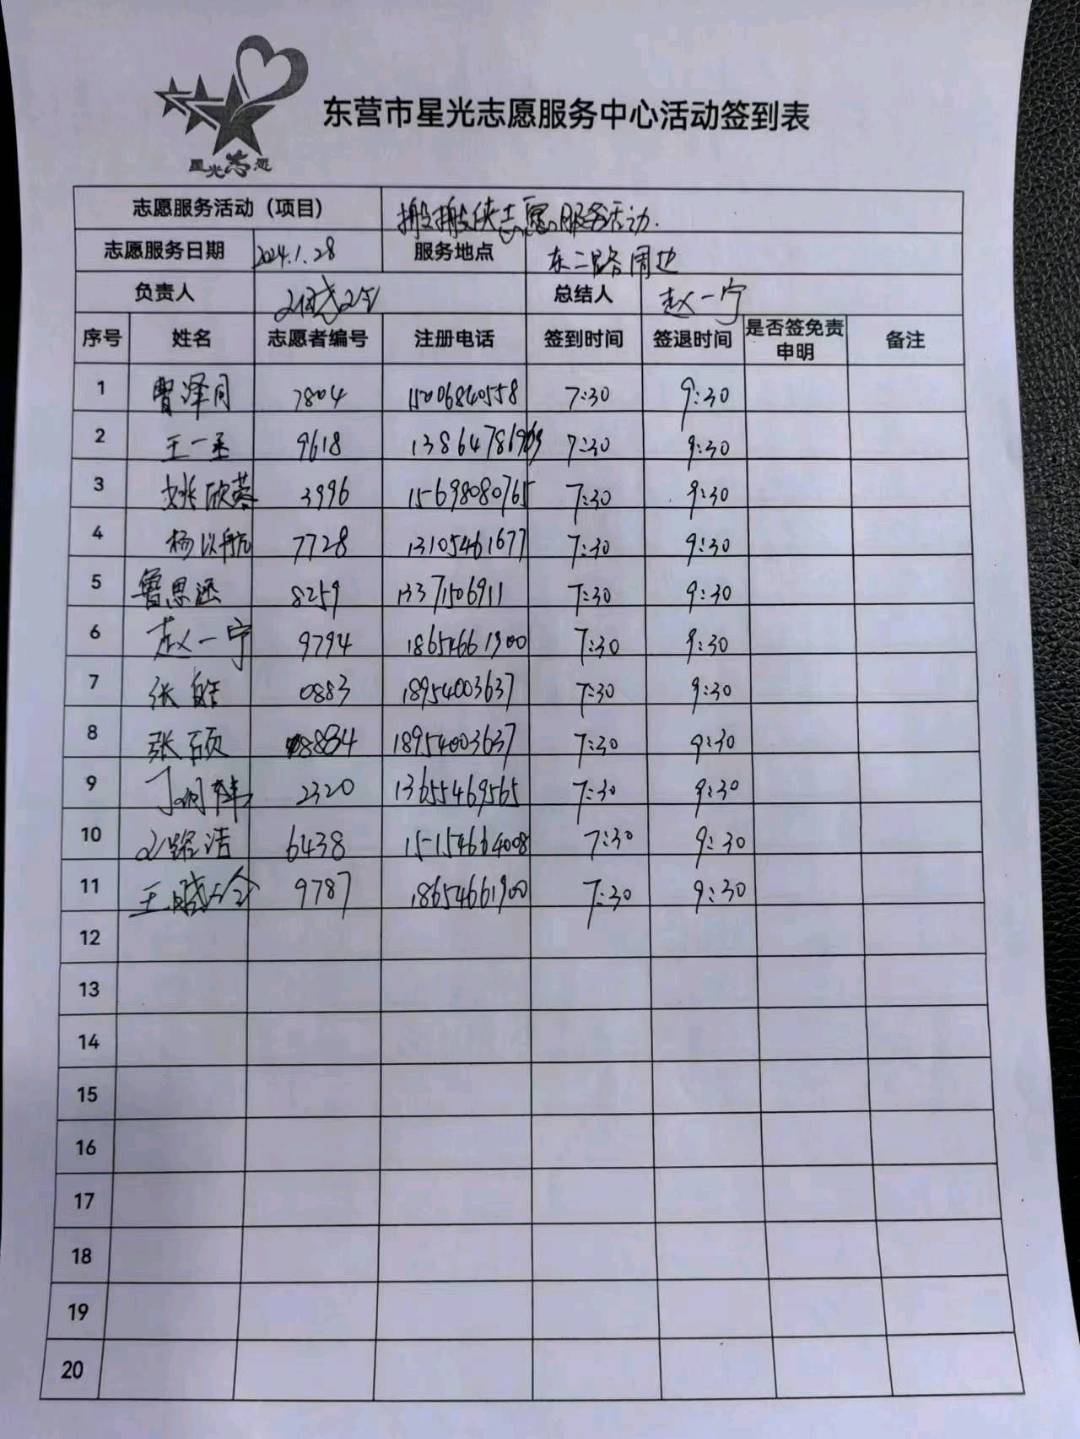 星光志愿
东营市星光志愿服务中心活动签到表
志愿服务活动（项目） 搬搬侠志愿服务活动.
志愿服务日期 2024.1.28 服务地点 东二路周边
负责人 总结人 赵一宁
序号 姓名 志愿者编号 注册电话 签到时间 签退时间 是否签免责申明 备注
1 曹泽同 7804 15006840558 7:30 9:30
2 王一丞 9618 7:30 9:30
3 姚欣蓉 3996 15698080765 7:30 9:30
4 杨以航 7728 13105461677 7:30 9:30
5 鲁思涵 8259 7:30 9:30
6 赵一宁 9794 18654661900 7:30 9:30
7 张皓 0883 18954003637 7:30 9:30
8 张硕 0884 18954003637 7:30 9:30
9 2320 13655469565 7:30 9:30
10 6438 15154664008 7:30 9:30
11 9787 18654661900 7:30 9:30
12
13
14
15
16
17
18
19
20